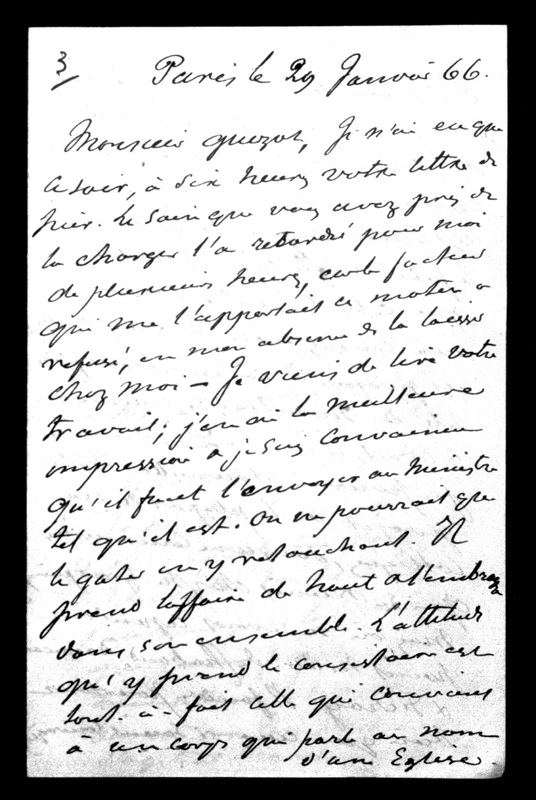 3
Paris le 29 Janvier 66.
Monsieur Guizot, Je n'ai eu que
ce soir, à six heures votre lettre de
hier. Le soin que vous avez pris de
la charger l'a retardé pour moi
de plusieurs heures, car le facteur
qui me l'apportait ce matin a
refusé, en mon absence de la laisser
chez moi – Je viens de lire votre
travail; j'en ai la meilleure
impression et je suis convaincu
qu'il faut l'envoyer au Ministre
tel qu'il est. On ne pourrait que
le gâter en y retouchant. Il
prend l'affaire de haut et l'embrasse
dans son ensemble. L'attitude
qu'y prend le consistoire est
tout-à-fait celle qui convient
à un corps qui parle au nom
d'une Eglise.